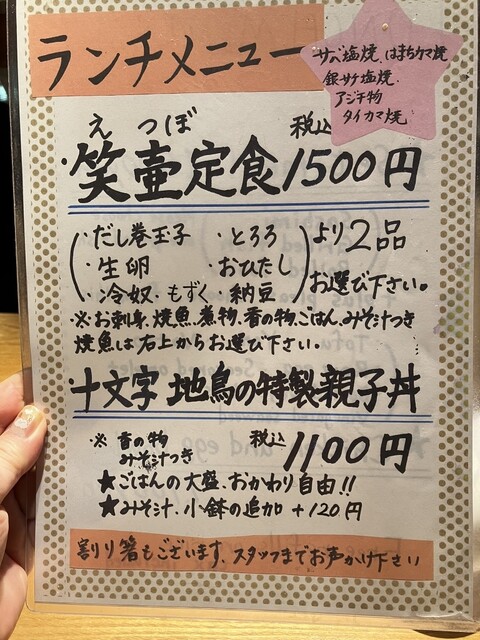 ランチメニュー
サバ塩焼、はまちカマ焼
銀サケ塩焼、
アジ干物
タイカマ焼
えつぼ
・笑壷定食 税込 1500円
・だし巻玉子 ・とろろ
・生卵 ・おひたし
・冷奴・もずく・納豆
より2品
お選び下さい。
※お刺身、焼魚、煮物、香の物、ごはん、みそ汁つき
焼魚は右上からお選び下さい。
・十文字 地鳥の特製親子丼
※香の物
みそ汁つき
税込 1100円
★ごはんの大盛、おかわり自由!!
★みそ汁、小鉢の追加 +120円
割り箸もございます、スタッフまでお声かけ下さい